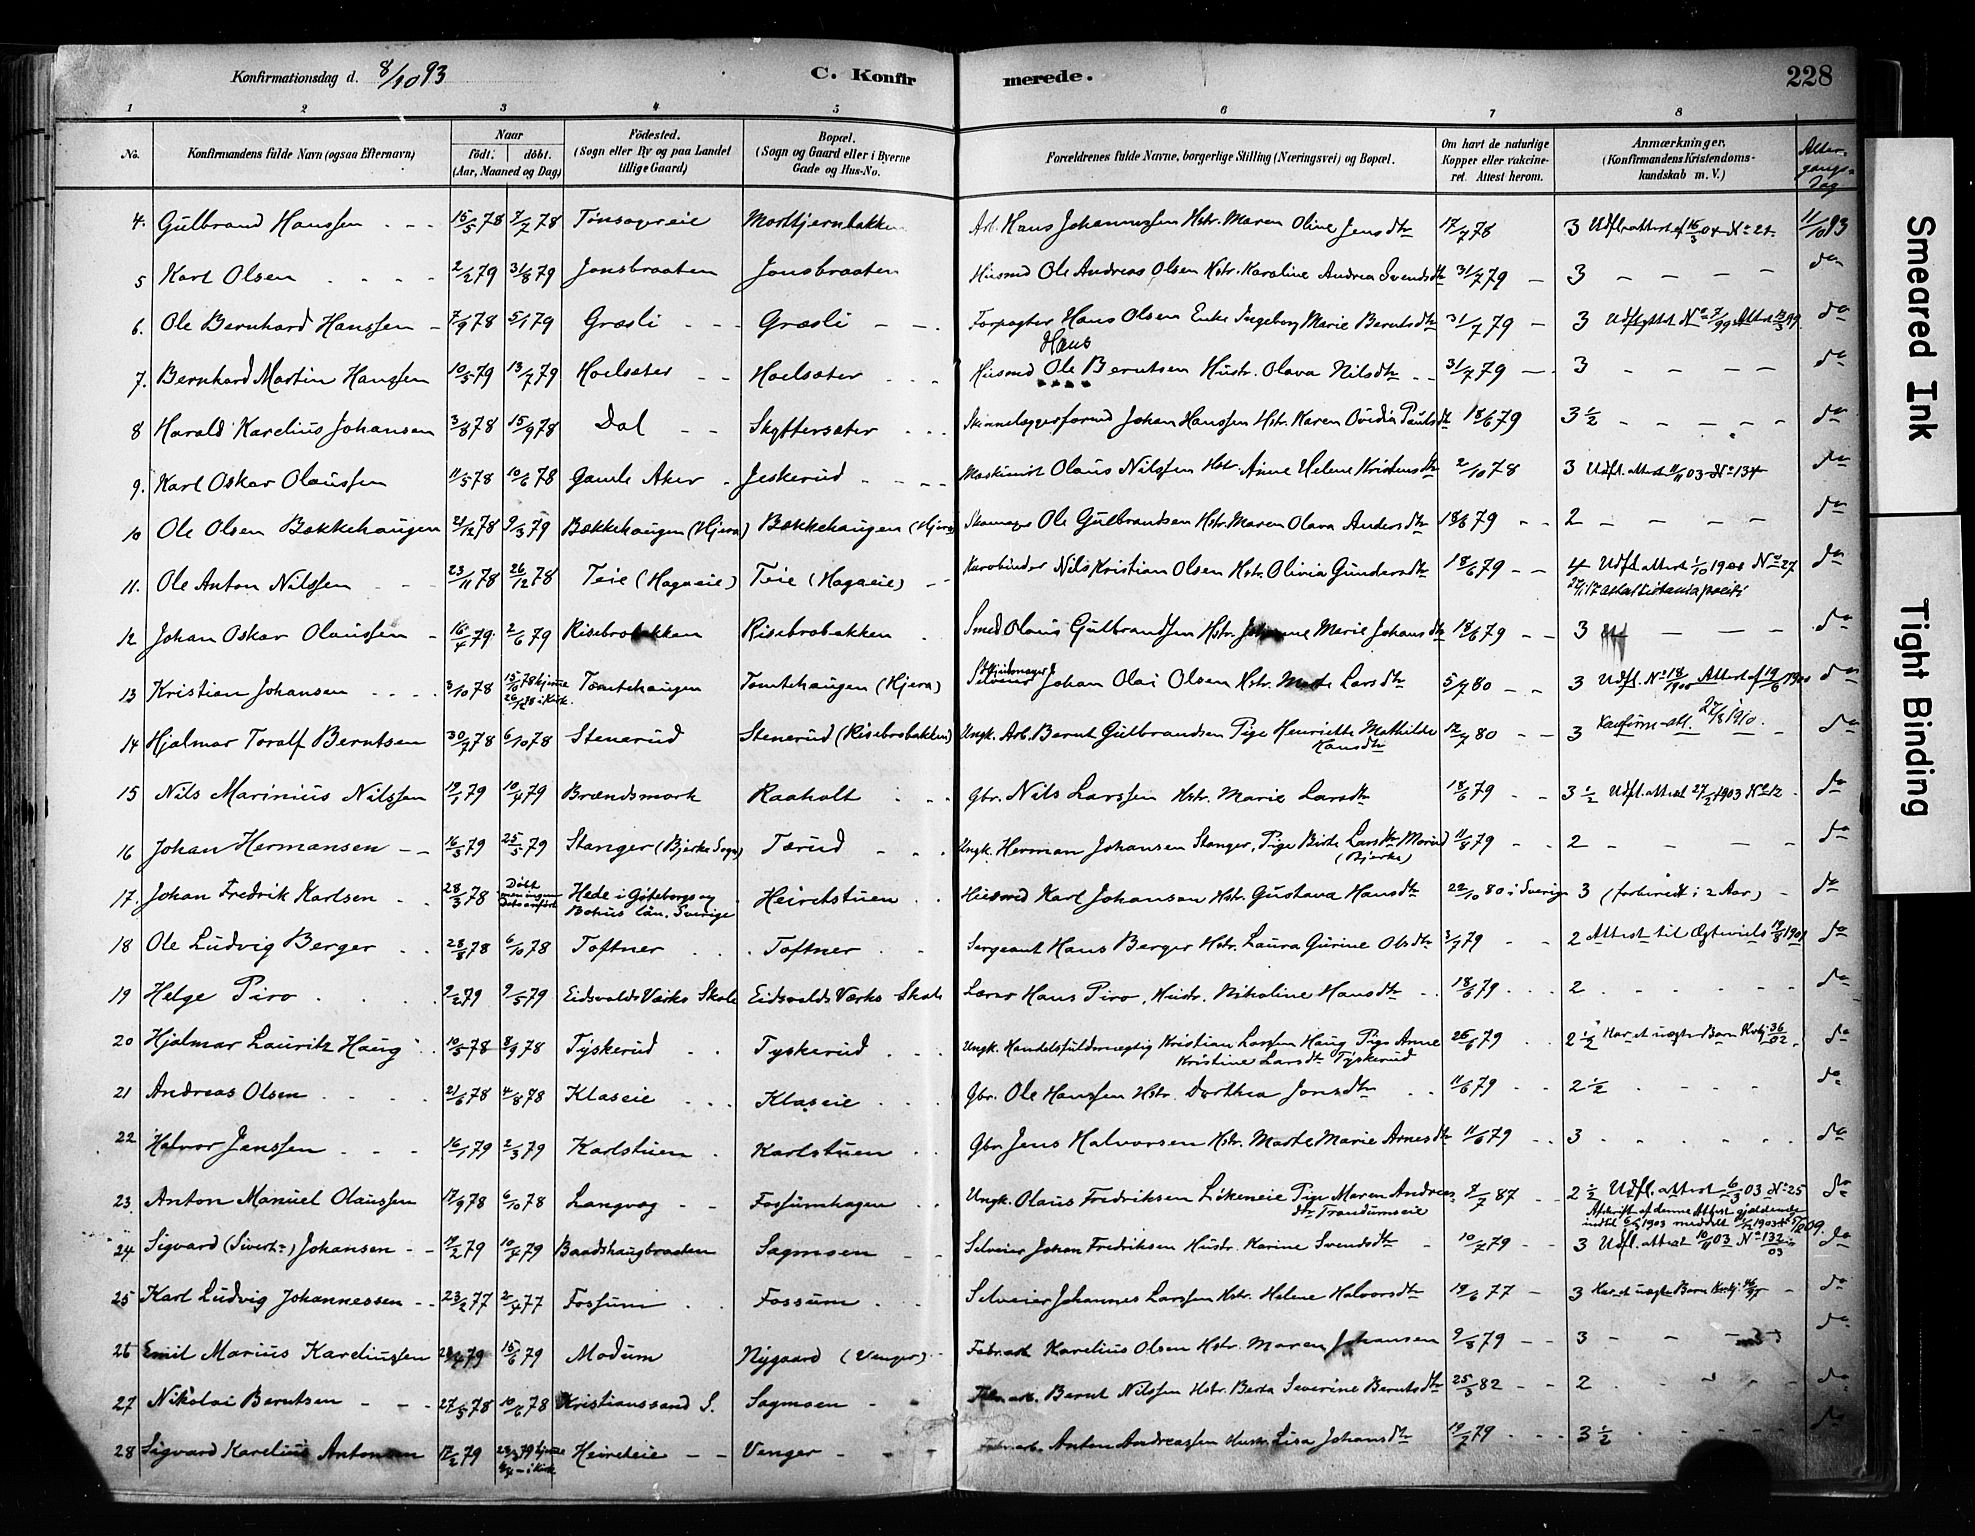 Konfirmationsdag d. 8/10 93 C. Konfir merede. 228
1 2 3 4 5 6 7 8
No. Konfirmandens fulde Navn (ogsaa Efternavn) Naar födt. döbt. (Aar, Maaned og Dag) Födested. (Sogn eller By og paa Landet tillige Gaard) Bopæl. (Sogn og Gaard eller i Byerne Gade og Hus-No. Forældrenes fulde Navne, borgerlige Stilling (Næringsvei) og Bopæl. Om havt de naturlige Kopper eller vakcineret. Attest herom. Anmærkninger, (Konfirmandens Kristendomskundskab m. V.) Altergangs-Dag
4. Gulbrand Hanssen 15/5 78 7/7 78 Tonsagereie Mortkjernbakken Arb. Hans Johannessen Hstr. Maren Oline Jensdtr 17/7 78 3 Udfl. attest af 16/3 04 No 21 11/10 93
5 Karl Olsen 2/2 79 3/8 79 Jonsbraaten Jonsbraaten Husmd Ole Andreas Olsen Hstr. Karoline Andrea Svendsdtr 31/7 79 3 do
6. Ole Bernhard Hanssen 7/9 78 5/1 79 Græsli Græsli Forpagter Hans Olsen Enke Ingeborg Marie Berntsdtr 31/7 79 3 Udflyttet No 7/99 Attest 13/3 99 do
Hans
7. Bernhard Martin Hanssen 10/5 79 13/7 79 Hoelsæter Hoelsæter Husmd Ole Berntsen Hustr. Olava Nilsdtr 31/7 79 3 do
8 Harald Karelius Johansen 3/8 78 15/9 78 Dal Skyttersæter Skinnelæggerformd Johan Hanssen Hstr. Karen Ovidia Paulsdtr 18/6 79 3 1/2 do
9. Karl Oskar Olaussen 11/5 78 10/6 78 Gamle Aker Jeskerud Maskinist Olaus Nilssen Hstr. Anne Helene Kristensdtr 2/10 78 3 Udfl. attest 11/11 03 No 134 do
10 Ole Olsen Bækkehaugen 21/12 78 9/3 79 Bækkehaugen (Hjera) Bækkehaugen (Hjera) Skomager Ole Gulbrandsen Hstr. Maren Olava Andersdtr 18/6 79 2 do
11. Ole Anton Nilssen 23/11 78 26/12 78 Teie (Hagaeie) Teie (Hagaeie) Kurvbinder Nils Kristian Olsen Hstr. Olivia Gundersdtr 18/6 79 4 Udfl. attest 1/10 1900 No 27 do
12 Johan Oskar Olaussen 16/4 79 2/6 79 Risebrobakken Risebrobakken Smed Olaus Gulbrandsen Hstr. Johanne Marie Johansdtr 18/6 79 3 do
13 Kristian Johansen 3/10 78 15/10 78 hjemme 26/12 78 i Kirk. Tomtehaugen Tomtehaugen (Hjera) Selveier Johan Olai Olsen Hstr. Marte Larsdtr 5/7 80 3 Udfl. No 18/1900 Attest af 19/6 1900 do
14 Hjalmar Toralf Berntsen 30/7 78 6/10 78 Stenerud Stenerud (Risebrobakken) Ungk. Arb. Bernt Gulbrandsen Pige Henriette Mathilde Hansdtr 12/7 80 3 Konfirm-att. 27/8 1910. do
15 Nils Marinius Nilssen 19/1 79 10/4 79 Brændsmork Raaholt Gbr. Nils Larssen Hstr. Marie Larsdtr 18/6 79 3 1/2 Udfl. attest 27/2 1903 No 12 do
16 Johan Hermansen 16/3 79 25/5 79 Stanger (Bjerke Sogn) Tærud Ungk. Herman Johansen Stanger, Pige Birte Larsdtr Morud (Bjerke) 11/8 79 2 do
17. Johan Fredrik Karlsen 28/3 78 Döbt men ingen Dato anfört Hede i Göteborgs og Bohus län. Sverige Heiretstuen Husmd Karl Johansen Hstr. Gustava Hansdtr 22/10 80 i Sverige 3 (forberedt i 2 Aar) do
18 Ole Ludvig Berger 28/8 78 6/10 78 Toftner Toftner Sergeant Hans Berger Hstr. Laura Gurine Olsdtr 3/7 79 2 Attest til Ægteviels 19/8 1901 do
19 Helge Piro 9/2 79 9/5 79 Eidsvolds Værks Skole Eidsvolds Værks Skole Lærer Hans Piro, Hustr. Nikoline Hansdtr 18/6 79 2 do
20 Hjalmar Lauritz Haug 10/5 78 8/9 78 Tyskerud Tyskerud Ungk. Handelsfuldmægtig Kristian Larssen Haug Pige Anne Kristine Larsdtr Tyskerud 25/6 79 2 1/2 Har et uægte Barn Kvbj 36/02. do
21 Andreas Olsen 21/6 78 4/8 78 Klaseie Klaseie Gbr. Ole Hanssen Hstr. Dorthea Jonsdtr 11/6 79 2 1/2 do
22 Halvor Jenssen 16/1 79 2/3 79 Karlstuen Karlstuen Gbr. Jens Halvorsen Hstr. Marte Marie Arnesdtr 11/6 79 3 do
23. Anton Manuel Olaussen 17/9 78 6/10 78 Langvæg Fossumhagen Ungk. Olaus Fredriksen Lökeneie Pige Maren Andreasdtr Trandumseie 8/7 87 2 1/2 Udfl. attest 6/3 03 No 25 do
Afskrift af denne Attest gjældende
24. Sigvard (Sivert) Johansen 9/2 79 10/4 79 Baadshaugbraaten Sagmoen Selveier Johan Fredriksen Hustr. Karine Svendsdtr 10/7 79 3 Udfl. attest 10/11 03 No 132/03 do
25 Karl Ludvig Johannessen 23/2 77 2/4 77 Fossum Fossum Selveier Johannes Larssen Hstr. Helene Halvorsdtr 19/6 77 3 Har et uægte Barn do
26 Emil Marius Kareliussen 79 15/6 79 Modum Nygaard (Venger) Fabr. arb. Karelius Olsen Hstr. Maren Johansen 9/8 79 3 do
27 Nikolai Berntsen 27/5 78 10/6 78 Kristianssand S. Sagmoen Fabr. arb. Bernt Nilssen Hstr. Berta Severine Berntsdtr 25/3 82 2 do
28 Sigvard Karelius Antonsen 17/2 79 Heireteie Venger Fabr. arb. Anton Andreassen Hustr. Lisa Johansdtr 19/7 79 3 1/2 do
Smeared Ink
Tight Binding